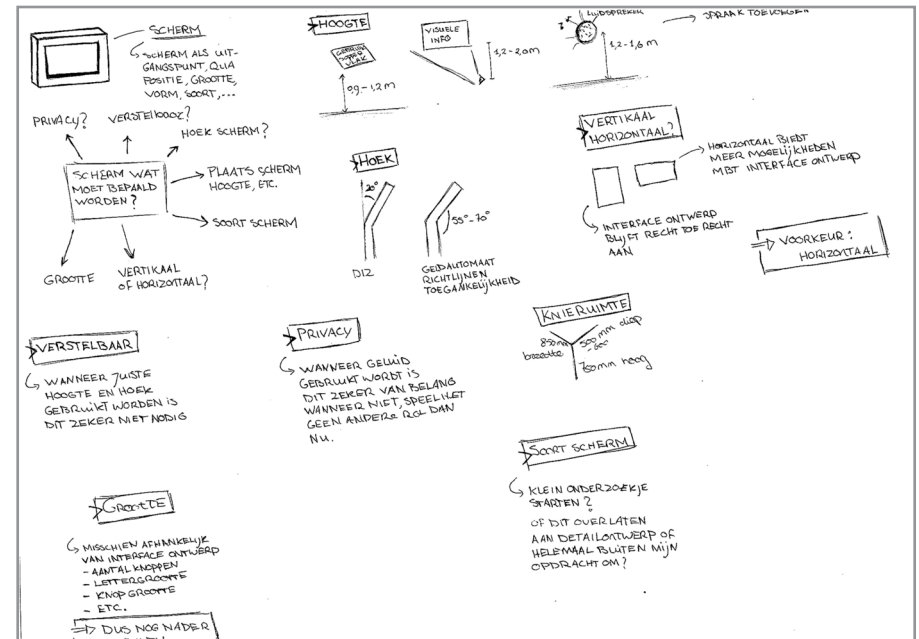 SCHERM
SCHERM ALS UIT-
GANGSPUNT, QUA
POSITIE, GROOTTE,
VORM, SOORT,...
PRIVACY?
VERSTELBAAR?
HOEK SCHERM?
SCHERM WAT
MOET BEPAALD
WORDEN?
PLAATS SCHERM
HOOGTE, ETC.
SOORT SCHERM
GROOTTE
VERTIKAAL
OF HORIZONTAAL?
HOOGTE
VLAK
0,9 - 1,2 m
VISUELE
INFO
1,2 - 2,0 m
LUIDSPREKER
1,2 - 1,6 m
SPRAAK TOEVOEGEN
HOEK
20°
DIZ
55° - 70°
GELDAUTOMAAT
RICHTLIJNEN
TOEGANKELIJKHEID
VERTIKAAL
HORIZONTAAL?
HORIZONTAAL BIEDT
MEER MOGELIJKHEDEN
MBT INTERFACE ONTWERP
INTERFACE ONTWERP
BLIJFT RECHT TOE RECHT
AAN
=> VOORKEUR:
HORIZONTAAL
VERSTELBAAR
WANNEER JUISTE
HOOGTE EN HOEK
GEBRUIKT WORDEN IS
DIT ZEKER NIET NODIG
PRIVACY
WANNEER GELUID
GEBRUIKT WORDT IS
DIT ZEKER VAN BELANG
WANNEER NIET, SPEELT HET
GEEN ANDERE ROL DAN
NU.
KNIERUIMTE
850mm
breedte
500 mm diep
- 600
750mm hoog
SOORT SCHERM
KLEIN ONDERZOEKJE
STARTEN?
OF DIT OVERLATEN
AAN DETAILONTWERP OF
HELEMAAL BUITEN MIJN
OPDRACHT OM?
GROOTTE
MISSCHIEN AFHANKELIJK
VAN INTERFACE ONTWERP
- AANTAL KNOPPEN
- LETTERGROOTTE
- KNOP GROOTTE
- ETC.
=> DUS NOG NADER